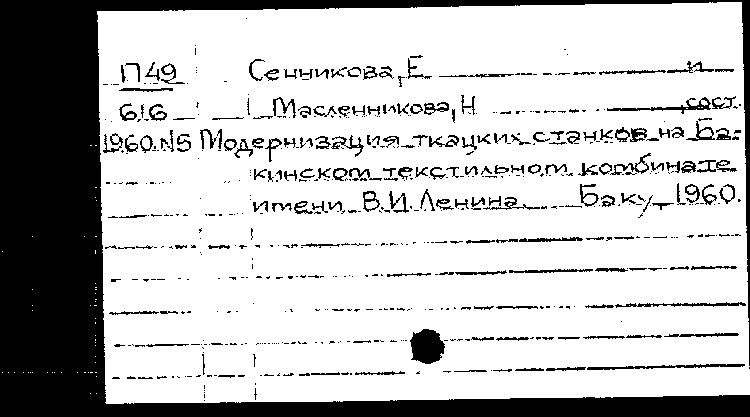 П49 Сенникова, Е и
616 Масленникова, Н сост.
1960.N5 Модернизация ткацких станков на Ба-
кинском текстильном комбинате
имени В.И. Ленина. Баку, 1960.